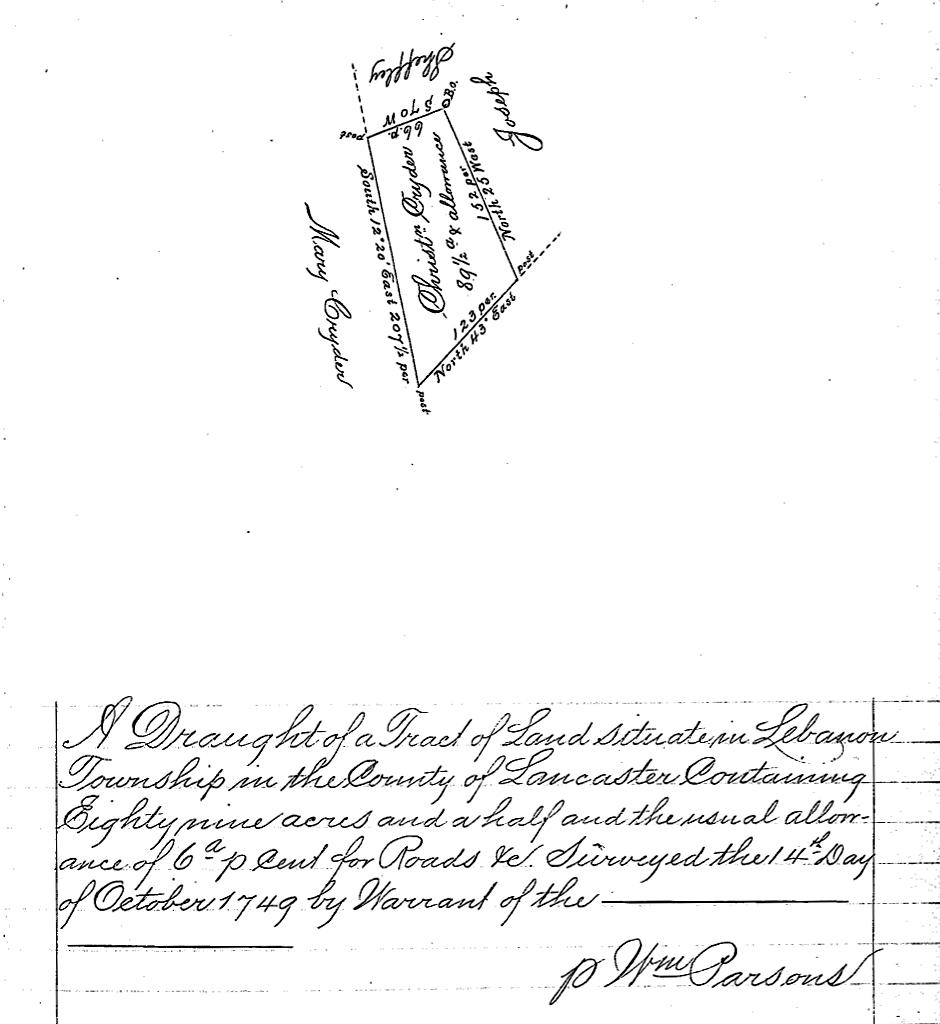 Sheffley
Joseph
B.O.
S 70 W
66 p.
post
South 12°20' East 207½ per
Mary Cryder
Christn Cryder
89½ a & allowance
152 per
North 25 West
post
123 per.
North 43° East
post
A Draught of a Tract of Land situate in Lebanon
Township in the County of Lancaster Containing
Eighty nine acres and a half and the usual allow-
ance of 6 a p Cent for Roads &c. Surveyed the 14th Day
of October 1749 by Warrant of the
p Wm Parsons